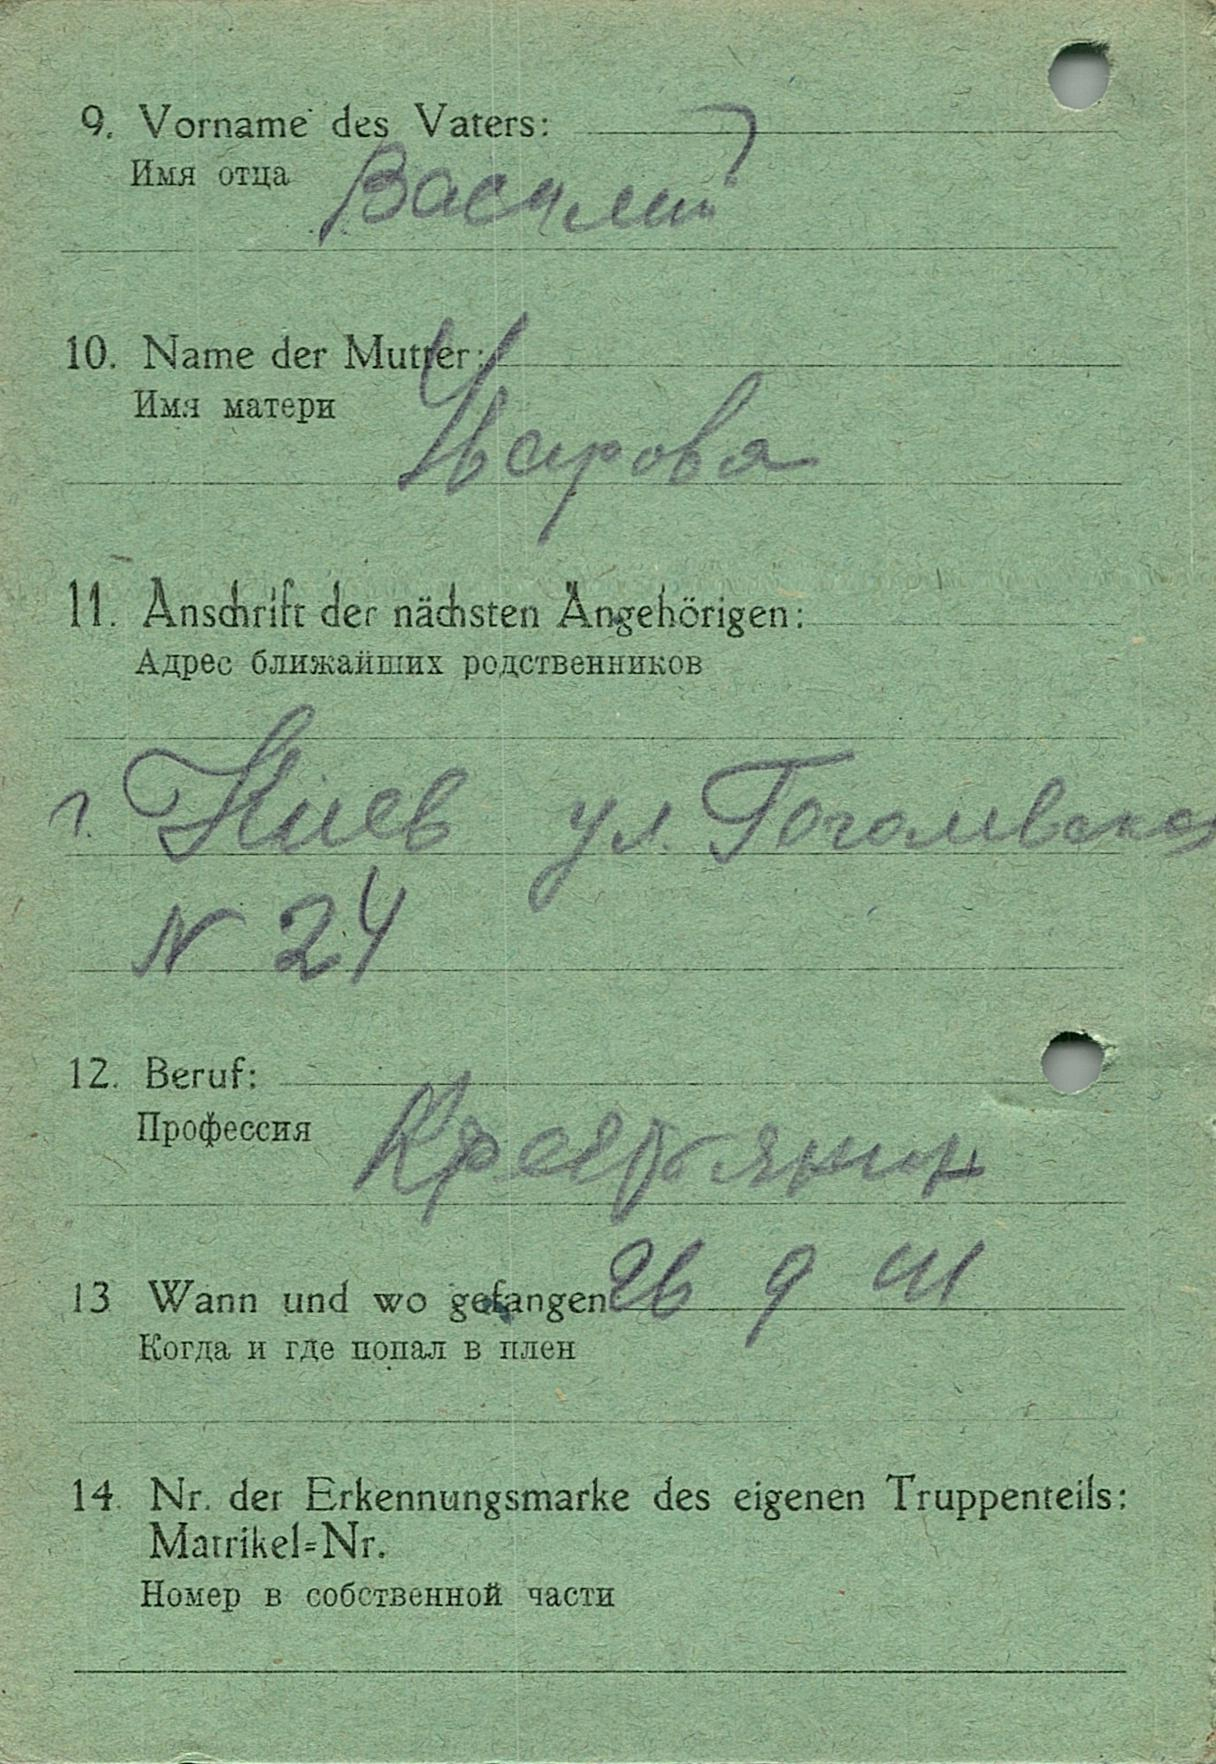 9. Vorname des Vaters:
Имя отца Василий
10. Name der Mutter:
Имя матери Уварова
11. Anschrift der nächsten Angehörigen:
Адрес ближайших родственников
г. Киев ул. Гоголевская
N 24
12. Beruf:
Профессия Крестянин
13 Wann und wo gefangen: 26 9 41
Когда и где попал в плен
14. Nr. der Erkennungsmarke des eigenen Truppenteils:
Matrikel=Nr.
Номер в собственной части